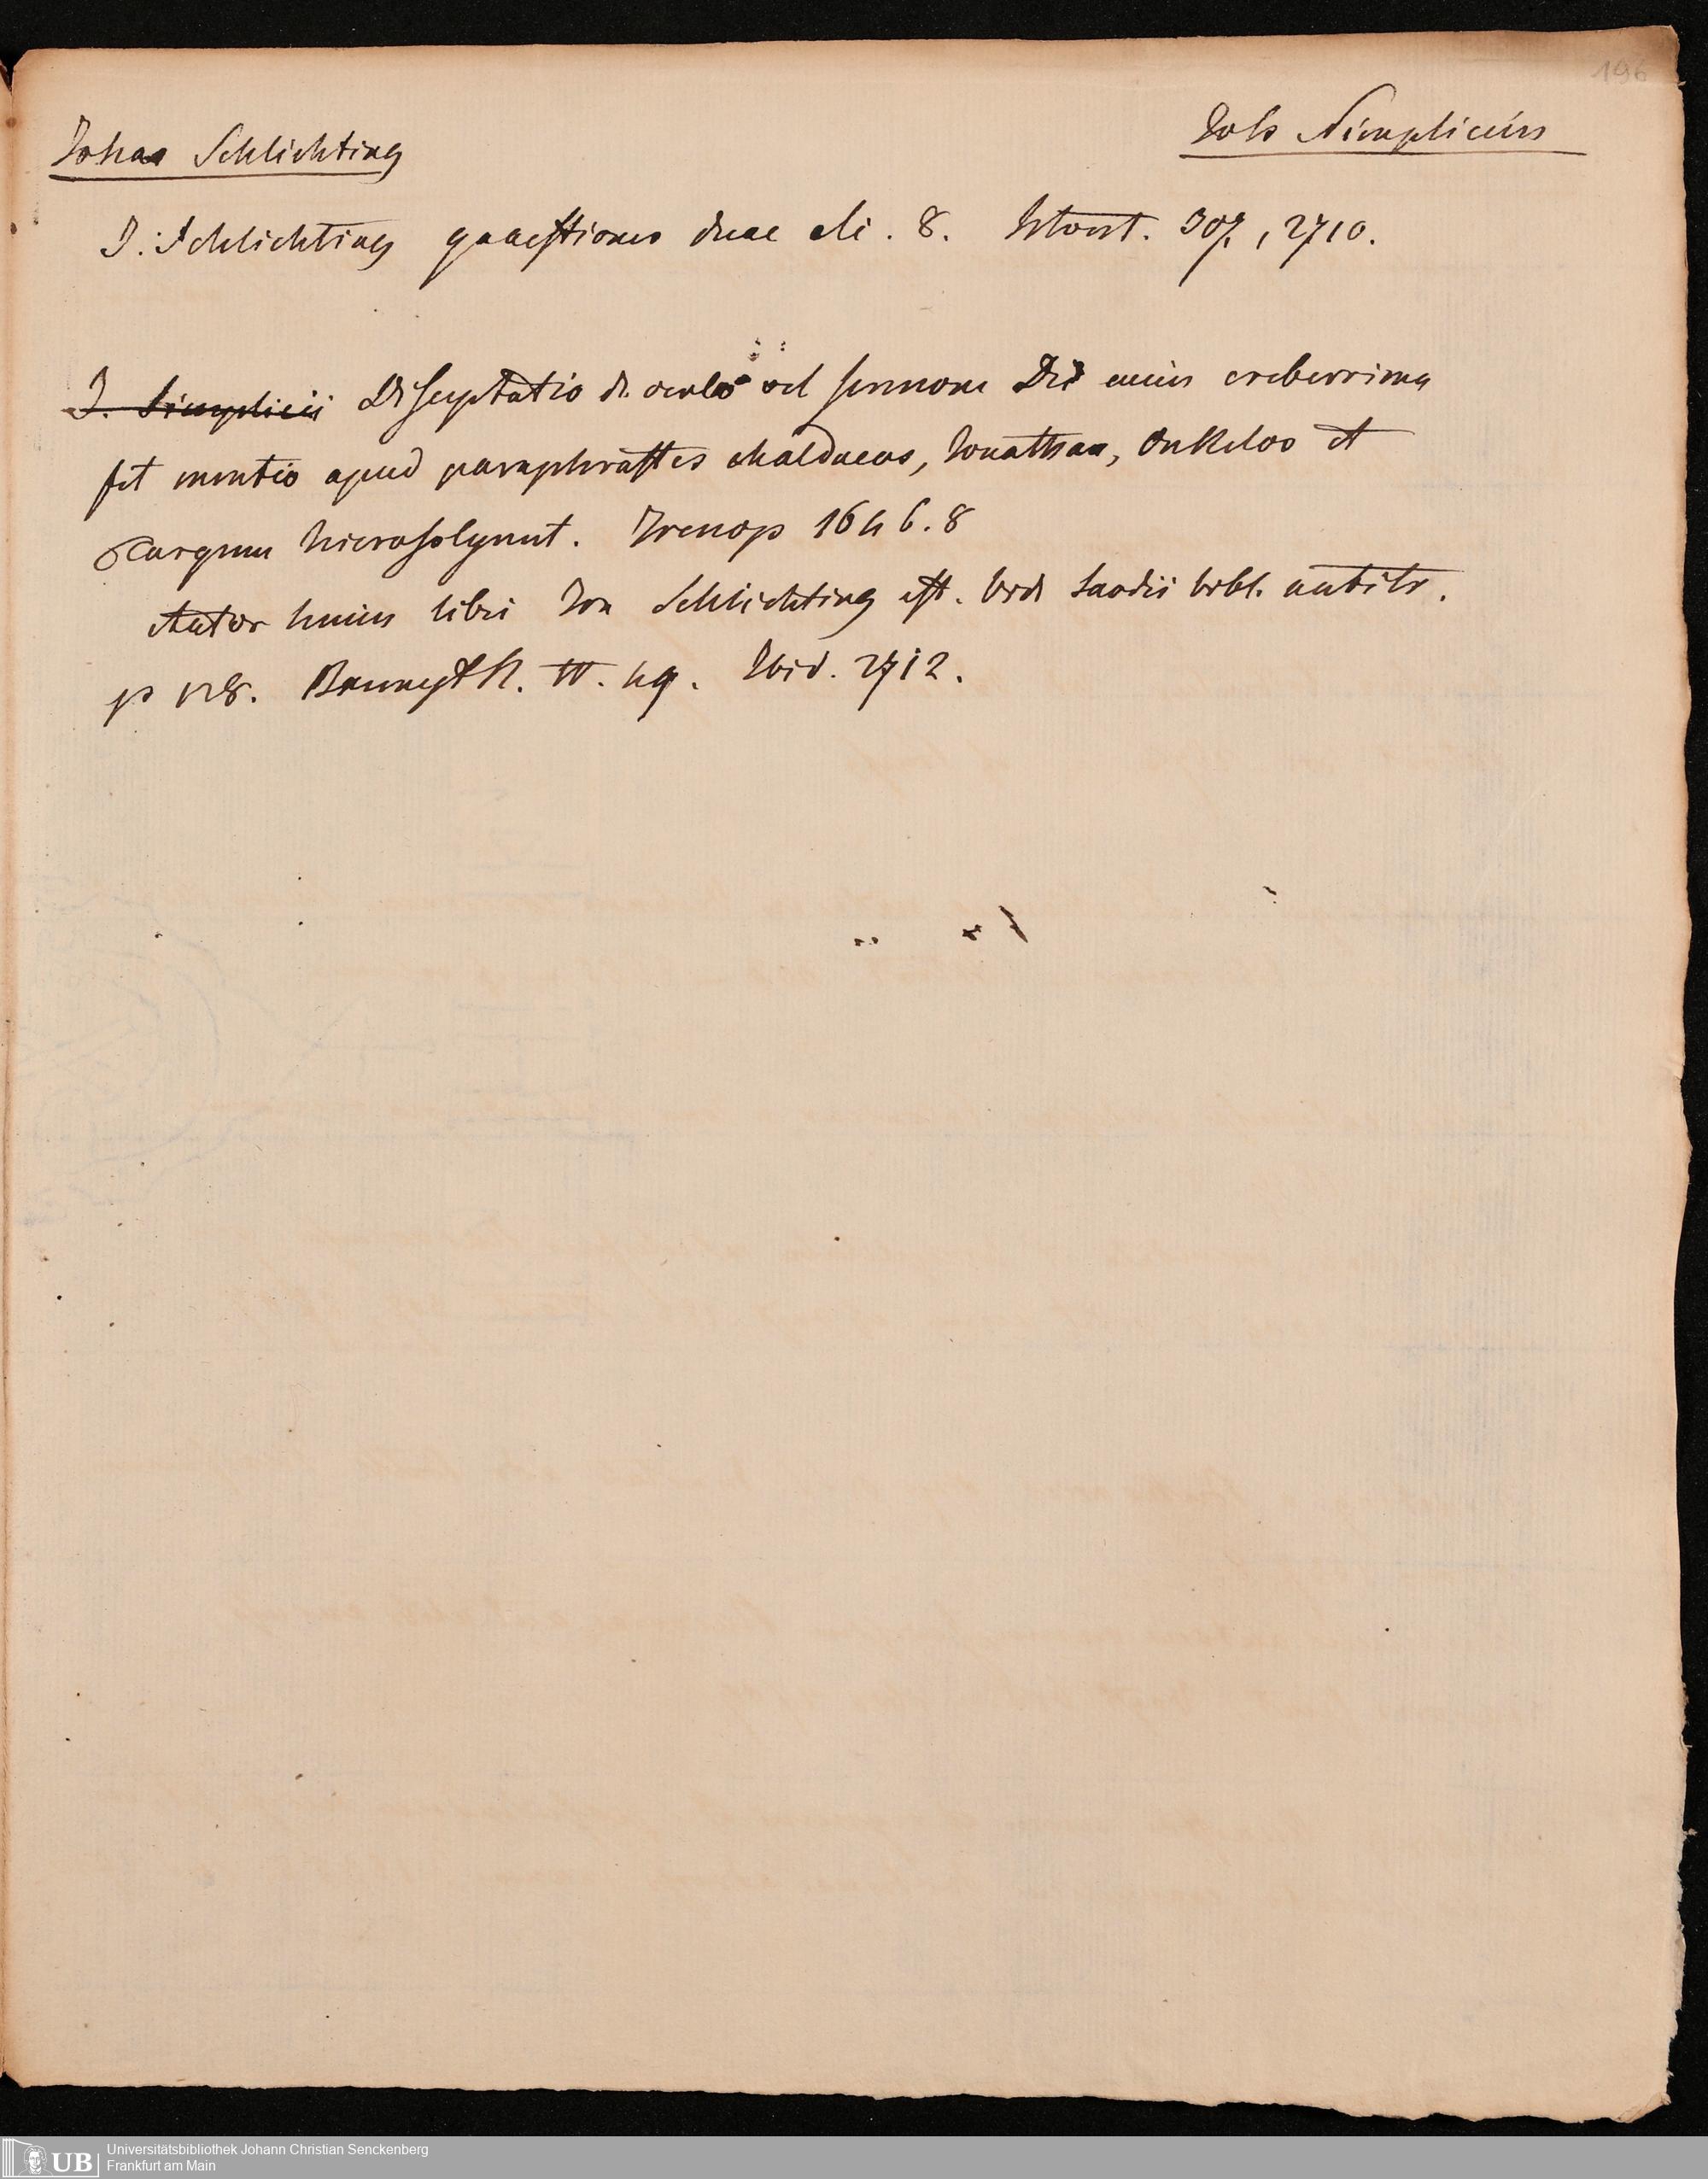 196
Johan Schlichting
Joh Simplicius
J. Schlichting quaestiones duae etc. 8. 307, 2710.
J. Simplicii Disceptatio de verbo vel sermone Dei cuius creberrima
fit mentio apud paraphrastes chaldaeos, Jonathan, Onkelos et
Targum hierosolymit. Irenop 1646. 8
Autor huius libri Jon Schlichting est. Vid. Sandii bibl. antitr.
p 128. Ibid. 2712.
UB
Universitätsbibliothek Johann Christian Senckenberg
Frankfurt am Main